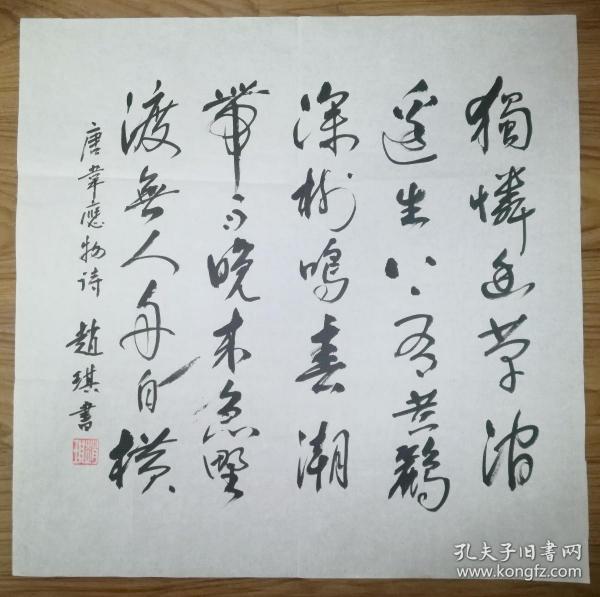 獨憐幽草澗
邊生上有黄鸝
深樹鳴春潮
帶雨晚来急野
渡無人舟自横
唐韋應物诗 趙琪書
孔夫子旧书网
www.kongfz.com